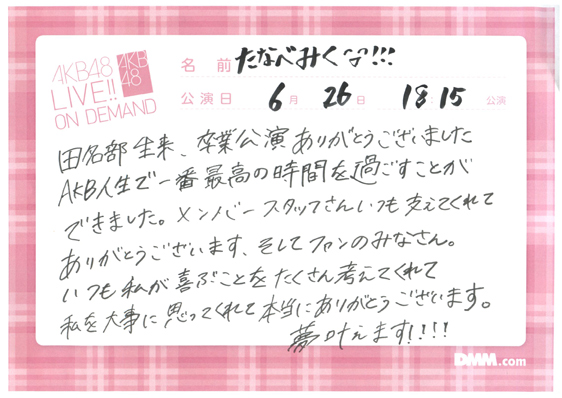 AKB48
LIVE!!
ON DEMAND
AKB
48
名 前 たなべみく!!!
公演日 6月 26日 18 15 公演
田名部生来、卒業公演ありがとうございました
AKB人生で一番最高の時間を過ごすことが
できました。メンバースタッフさんいつも支えてくれて
ありがとうございます、そしてファンのみなさん。
いつも私が喜ぶことをたくさん考えてくれて
私を大事に思ってくれて本当にありがとうございます。
夢叶えます!!!!
DMM.com